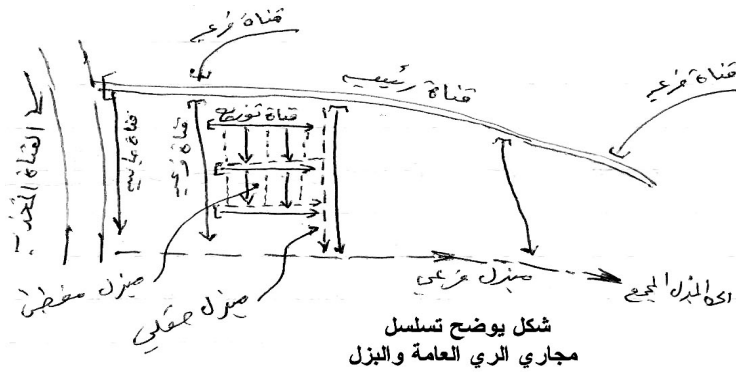 قناة فرعي
قناة رئيسيه
قناة فرعي
قناة توزيعيه
قناة جانبيه
قناة فرعي
القناة
مبزل مغطى
مبزل حقلي
مبزل فرعي
الى المبزل المجمع
شكل يوضح تسلسل
مجاري الري العامة والبزل